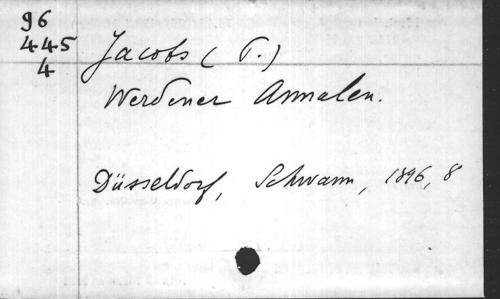 96
445
4
Jacobs (P.)
Werdener Annalen.
Düsseldorf, Schwann, 1896, 8